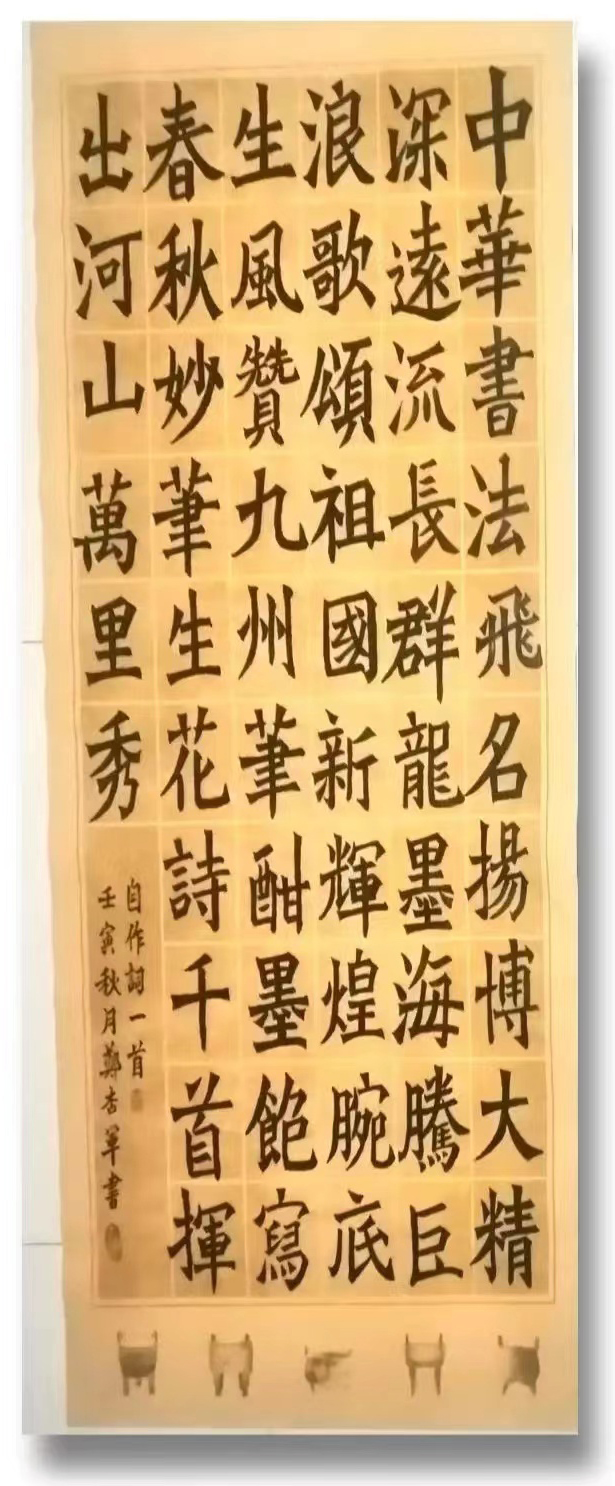 中華書法飛名揚博大精
深遠流長群龍墨海騰巨
浪歌頌祖國新輝煌腕底
生風贊九州筆酣墨飽寫
春秋妙筆生花詩千首揮
出河山萬里秀
自作詞一首
壬寅秋月鄭杏軍書